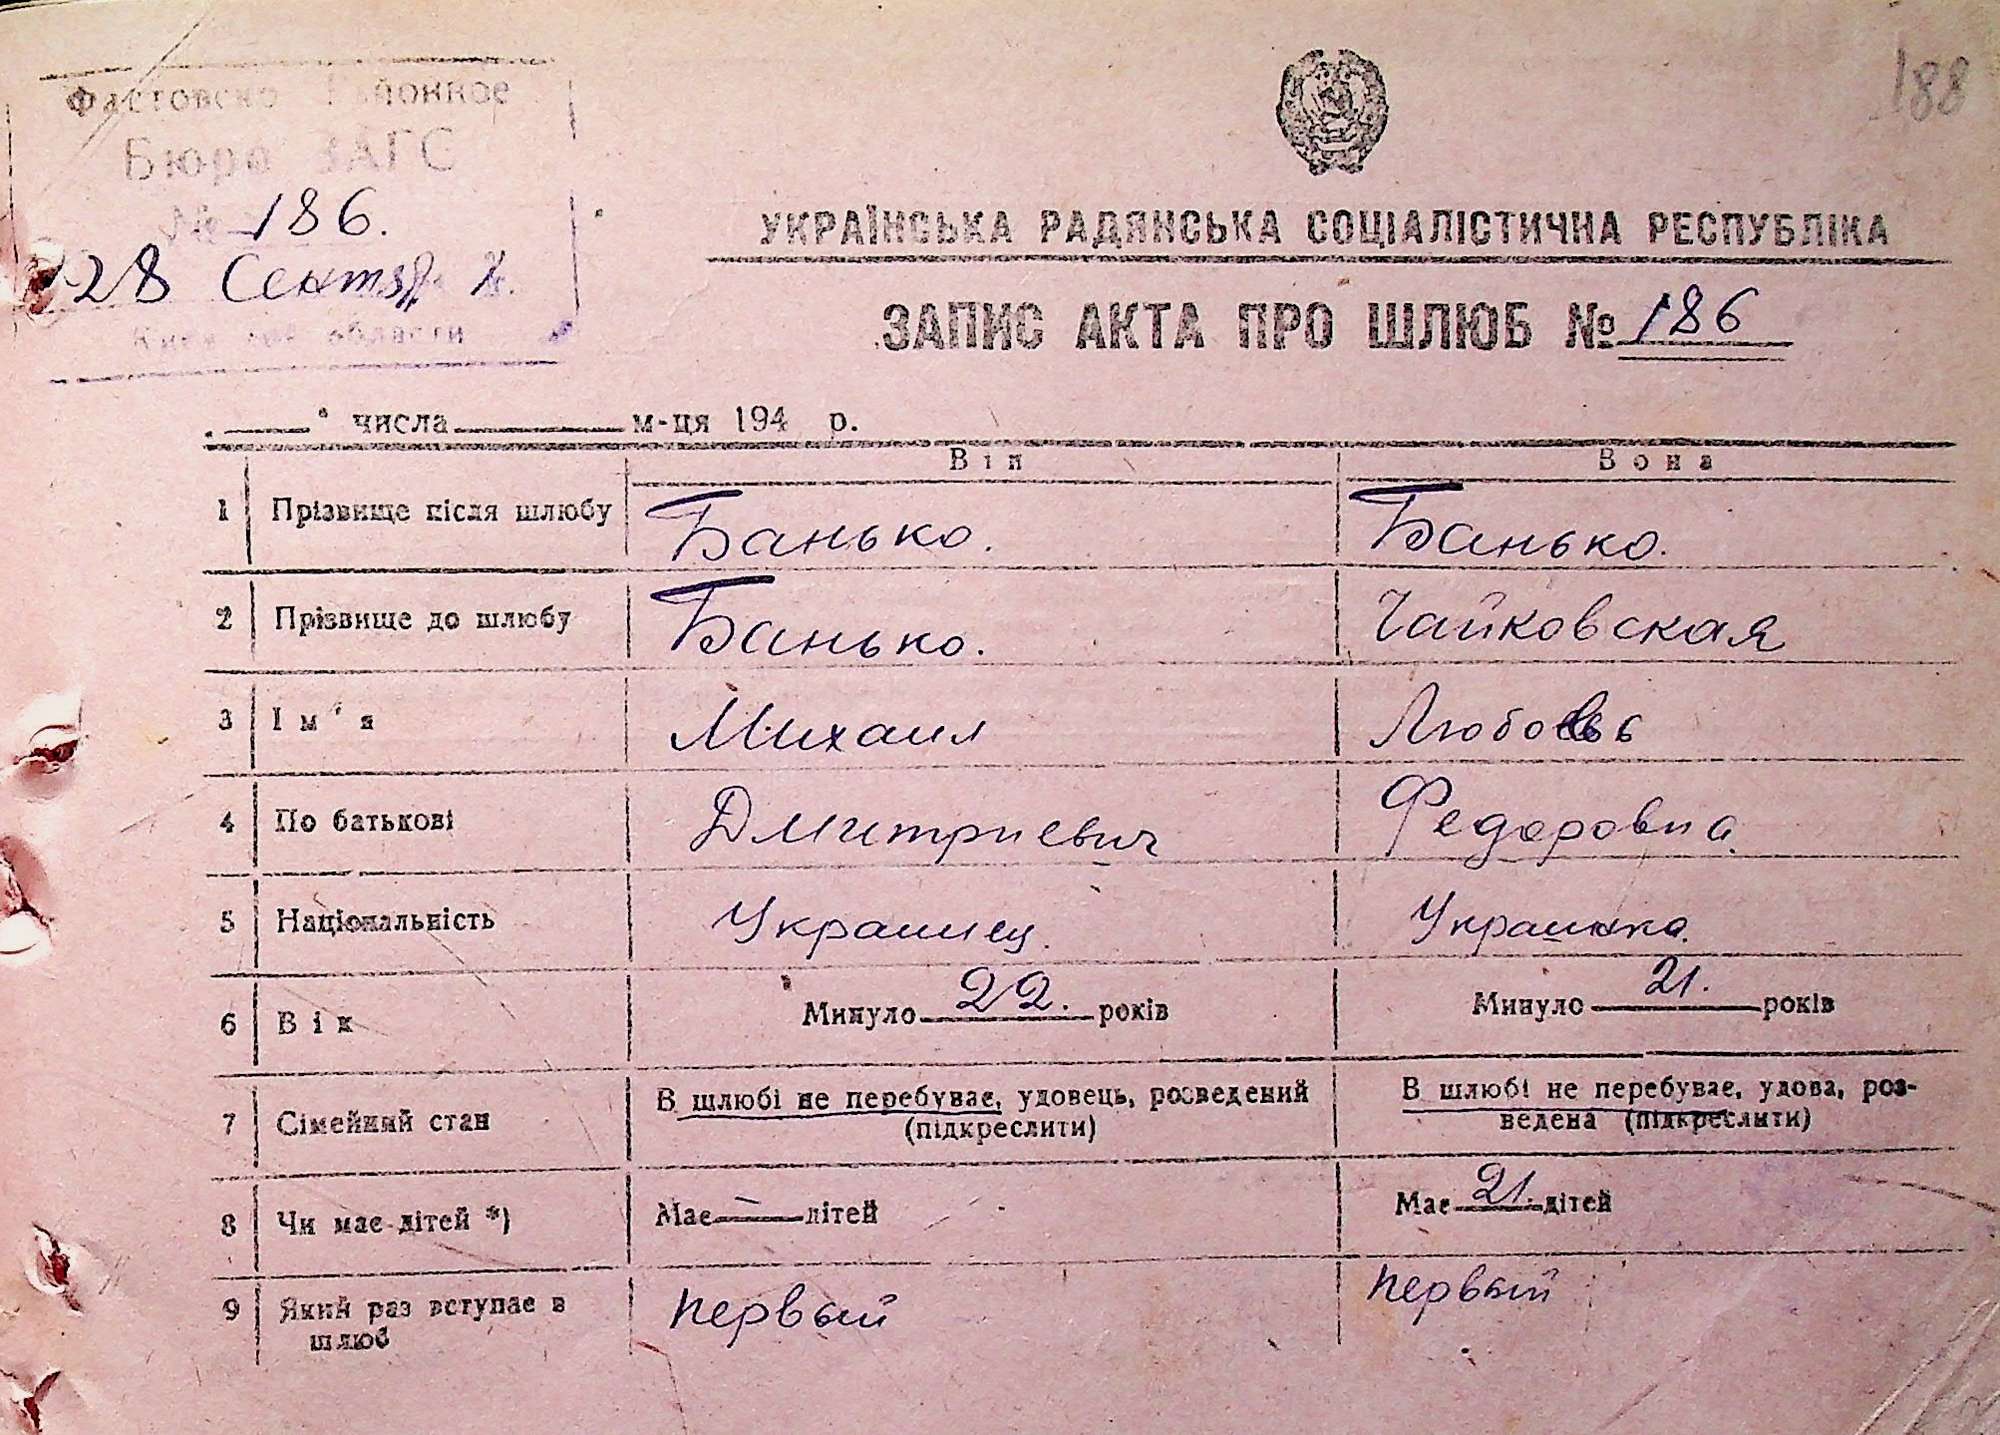 188
Фастовско Районное
Бюро ЗАГС
№ 186.
28 Сентяб
области
УКРАЇНСЬКА РАДЯНСЬКА СОЦІАЛІСТИЧНА РЕСПУБЛІКА
ЗАПИС АКТА ПРО ШЛЮБ № 186
" числа м-ця 194 р.
Він Вона
1 Прізвище після шлюбу Банько. Банько.
2 Прізвище до шлюбу Банько. Чайковская
3 Ім'я Михаил Любовь
4 По батькові Дмитриевич Федоровна.
5 Національність Украинец. Украинка.
6 Вік Минуло 22. років Минуло 21. років
7 Сімейний стан В шлюбі не перебуває, удовець, розведений (підкреслити) В шлюбі не перебуває, удова, роз-
ведена (підкреслити)
8 Чи має дітей *) Має — дітей Має 21. дітей
9 Який раз вступає в шлюб первый первый